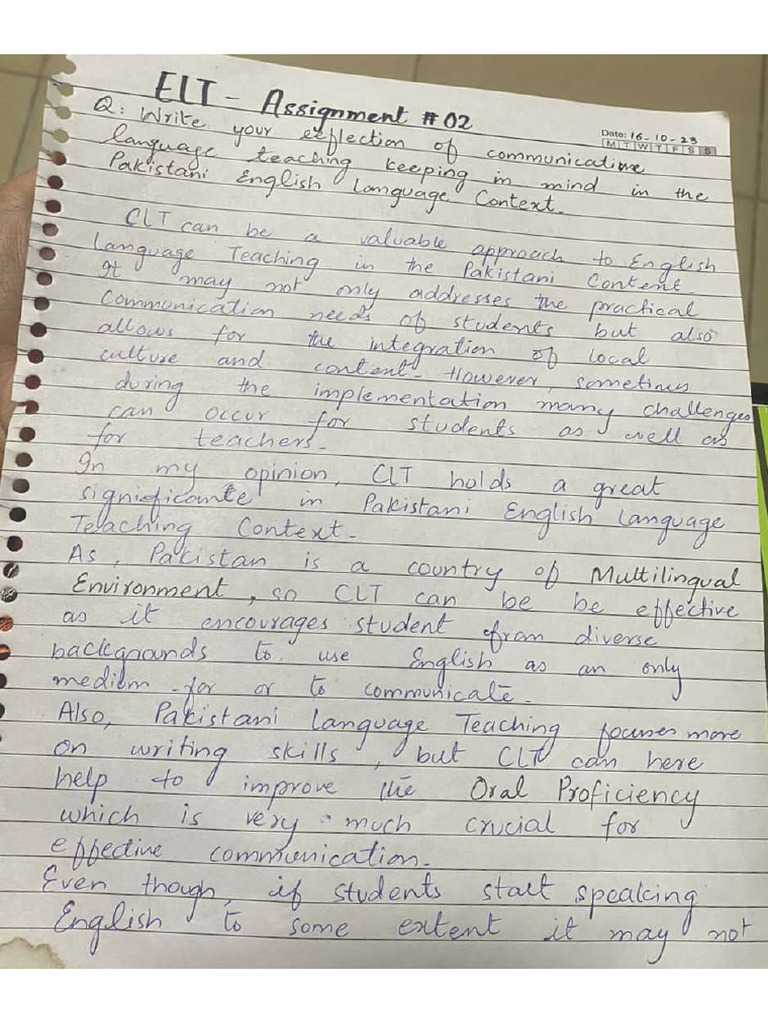 ELT - Assignment #02
Date: 16-10-23
M T W T F S S
Q: Write your reflection of communicative
language teaching keeping in mind in the
Pakistani English Language Context.
CLT can be a valuable approach to English
Language Teaching in the Pakistani Content.
It may not only addresses the practical
communication needs of students but also
allows for the integration of local
culture and content. However, sometimes
during the implementation many challenges
can occur for students as well as
for teachers.
In my opinion, CLT holds a great
significante in Pakistani English Language
Teaching Context.
As, Pakistan is a country of Multilingual
Environment, so CLT can be be effective
as it encourages student from diverse
backgrounds to use English as an only
medium for or to communicate.
Also, Pakistani Language Teaching focuses more
on writing skills, but CLT can here
help to improve the Oral Proficiency
which is very much crucial for
effective communication.
Even though, if students start speaking
English to some extent it may not